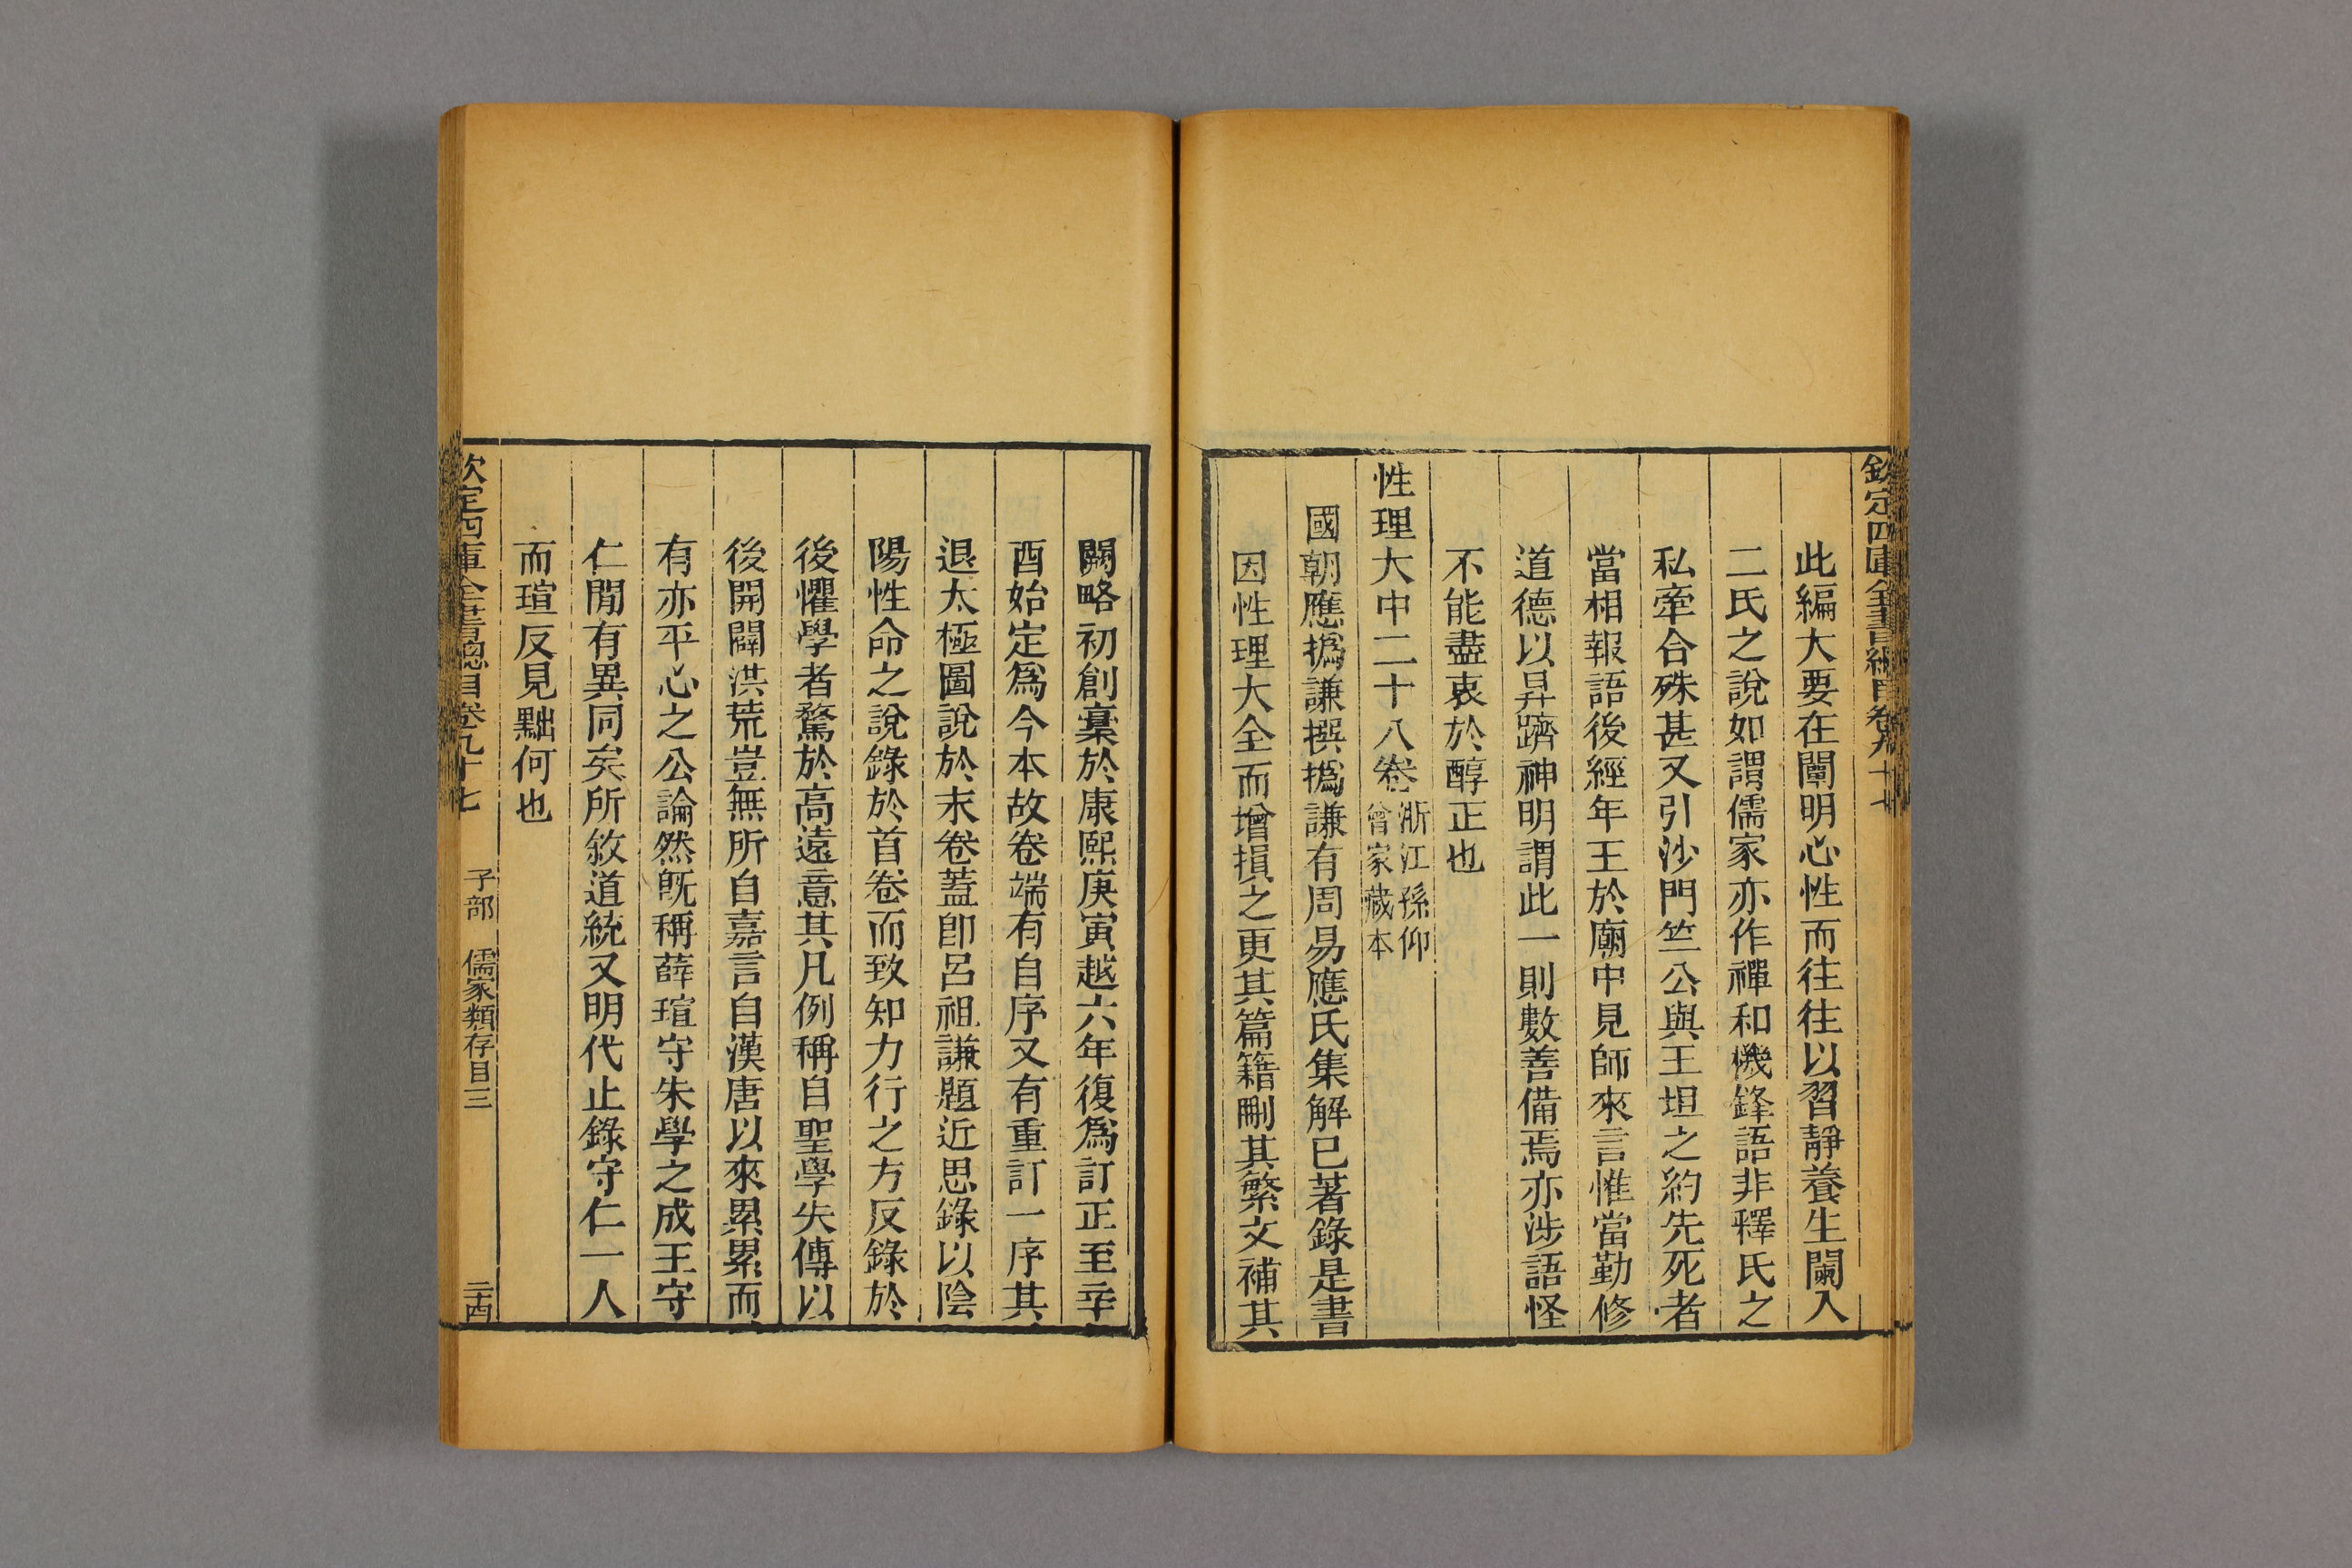 欽定四庫全書總目卷九十七
此編大要在闡明心性而往往以習靜養生闌入
二氏之說如謂儒家亦作禪和機鋒語非釋氏之
私牽合殊甚又引沙門竺公與王坦之約先死者
當相報語後經年王於廟中見師來言惟當勤修
道德以昇躋神明謂此一則數善備焉亦涉語怪
不能盡衷於醇正也
性理大中二十八卷浙江孫仰曾家藏本
國朝應撝謙撰撝謙有周易應氏集解已著錄是書
因性理大全而增損之更其篇籍刪其繁文補其
闕略初創稾於康熙庚寅越六年復爲訂正至辛
酉始定爲今本故卷端有自序又有重訂一序其
退太極圖說於末卷蓋卽呂祖謙題近思錄以陰
陽性命之說錄於首卷而致知力行之方反錄於
後懼學者騖於高遠意其凡例稱自聖學失傳以
後開闢洪荒豈無所自嘉言自漢唐以來累累而
有亦平心之公論然旣稱薛瑄守朱學之成王守
仁閒有異同矣所敘道統又明代止錄守仁一人
而瑄反見黜何也
欽定四庫全書總目卷九十七 子部 儒家類存目三 二十四